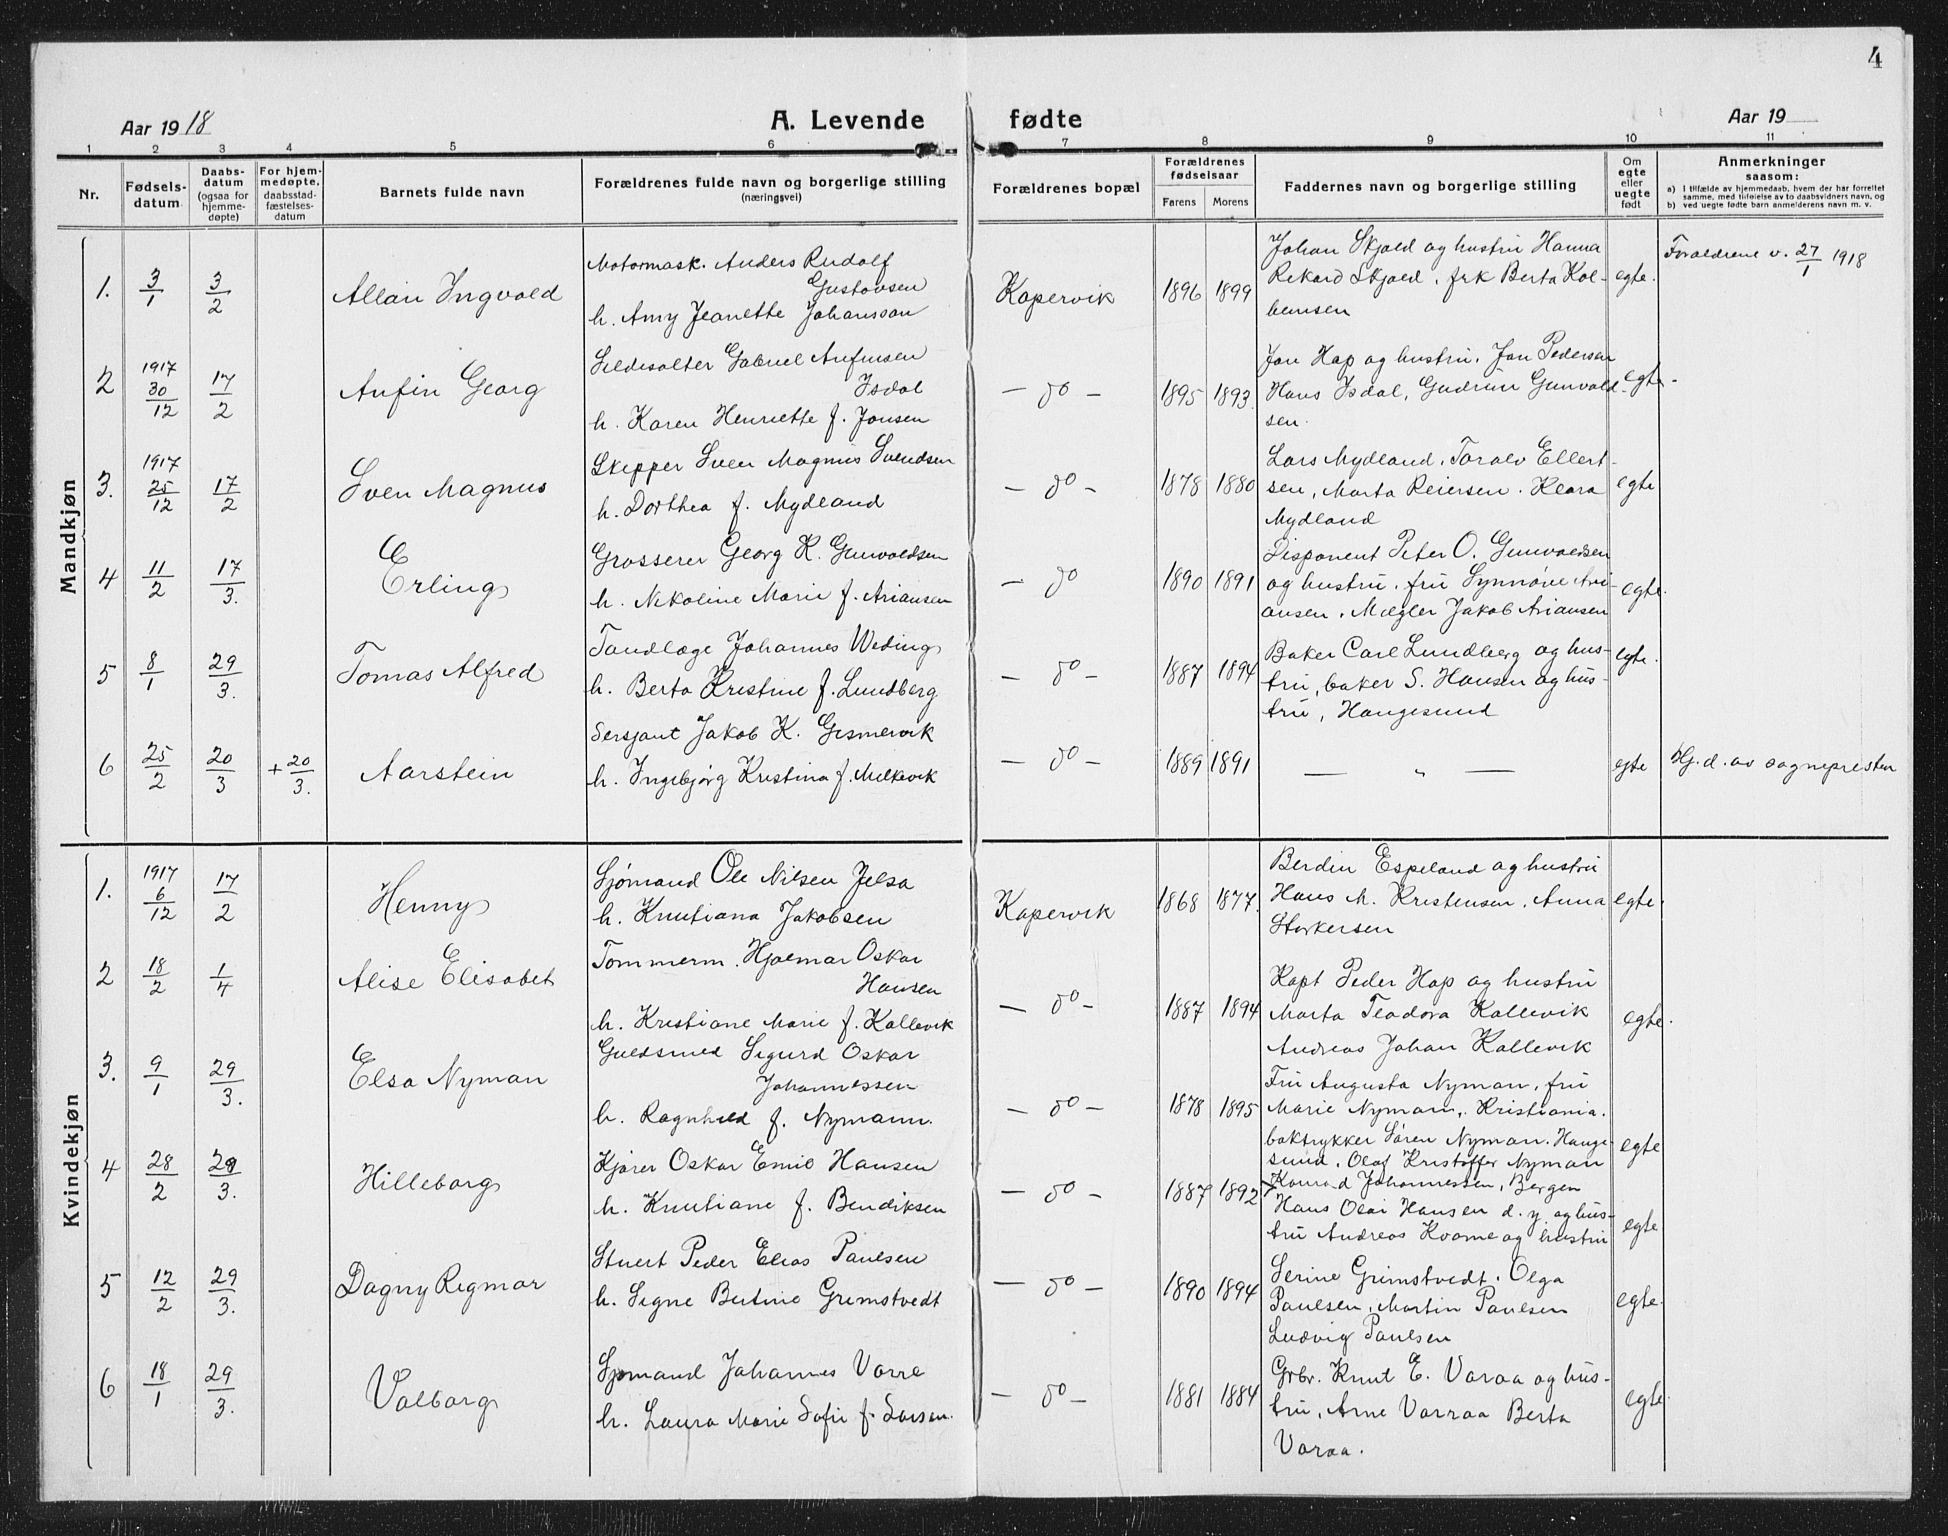 4
Aar 1918
A. Levende fødte
Aar 19
1 2 3 4 5 6 7 8 9 10 11
Nr.
Fødsels-
datum
Daabs-
datum
(ogsaa for
hjemme-
døpte)
For hjem-
medøpte,
daabsstad-
fæstelses-
datum
Barnets fulde navn
Forældrenes fulde navn og borgerlige stilling
(næringsvei)
Forældrenes bopæl
Forældrenes
fødselsaar
Farens Morens
Faddernes navn og borgerlige stilling
Om
egte
eller
uegte
født
Anmerkninger
saasom:
a) I tilfælde av hjemmedaab, hvem der har forrettet
samme, med tilføielse av to daabsvidners navn, og
b) ved uegte fødte barn anmelderens navn m. v.
Mandkjøn
1. 3/1 3/2 Allan Ingvald
Motormask. Anders Rudolf
Gustavsen
h. Amy Jeanette Johansson
Kopervik 1896 1899
Johan Skjold og hustru Hanna
Rekard Skjold, frk Berta Kol-
bensen
egte.
Forældrene v. 27/1 1918
2 1917 30/12 17/2 Anfin Georg
Sildesalter Gabriel Anfinsen
Isdal
h. Karen Henriette f. Jonsen
— do — 1895 1893
Jon Hop og hustru, Jon Pedersen
Hans Isdal, Gudrun Gunvald-
sen.
egte.
3. 1917 25/12 17/2 Sven Magnus
Skipper Sven Magnus Svendsen
h. Dorthea f. Mydland
— do — 1878 1880
Lars Mydland, Toralv Ellert-
sen, Marta Reiersen. Klara
Mydland
egte
4 11/2 17/3. Erling
Grosserer Georg K. Gunvaldsen
h. Nikoline Marie f. Ariansen
— do 1890 1891
Disponent Peter O. Gunvaldsen
og hustru, fru Synnøve Ari-
ansen, Mægler Jakob Ariansen
egte.
5 8/1 29/3. Tomas Alfred
Tandlæge Johannes Weding
h. Berta Kristine f. Lundberg
— do — 1887 1894
Baker Carl Lundberg og hus-
tru, baker S. Hansen og hus-
tru, Haugesund
egte.
6 25/2 20/3 + 20/3. Aarstein
Sersjant Jakob K. Gismervik
h. Ingebjørg Kristina f. Melkevik
— do — 1889 1891
— „ —
egte
Hj. d. av sognepresten
Kvindekjøn
1. 1917 6/12 17/2 Henny
Sjømand Ole Nilsen Jelsa
h. Knutiana Jakobsen
Kopervik 1868 1877.
Berdin Espeland og hustru
Hans M. Kristensen, Anna
Storkersen
egte.
2 18/2 1/4 Alise Elisabet
Tømmerm. Hjalmar Oskar
Hansen
h. Kristiane Marie f. Kallevik
— do — 1887 1894
Kapt Peder Hop og hustru
Marta Teodora Kallevik
Andreas Johan Kallevik
egte.
3. 9/1 29/3. Elsa Nyman
Guldsmed Sigurd Oskar
Johannessen
h. Ragnhild f. Nymann.
— do — 1878 1895
Fru Augusta Nyman, fru
Marie Nymann, Kristiania.
boktrykker Søren Nyman. Hauge-
sund, Olaf Kristoffer Nyman
Konrad Johannessen, Bergen
egte
4 28/2 29/3. Hilleborg
Kjører Oskar Emil Hansen
h. Knutiane f. Bendiksen
— do — 1887 1892
Hans Olai Hansen d. y. og hus-
tru Andreas Kvame og hustru
egte
5 12/2 29/3. Dagny Rigmor
Stuert Peder Elias Paulsen
h. Signe Bertine Grimstvedt
— do — 1890 1894
Serine Grimstvedt. Olga
Paulsen, Martin Paulsen
Ludvig Paulsen
egte.
6 18/1 29/3. Valborg
Sjømand Johannes Varre
h. Laura Marie Sofie f. Larsen.
— do — 1881 1884
Grbr. Knut E. Varaa og hus-
tru, Arne Varraa Berta
Varaa.
egte